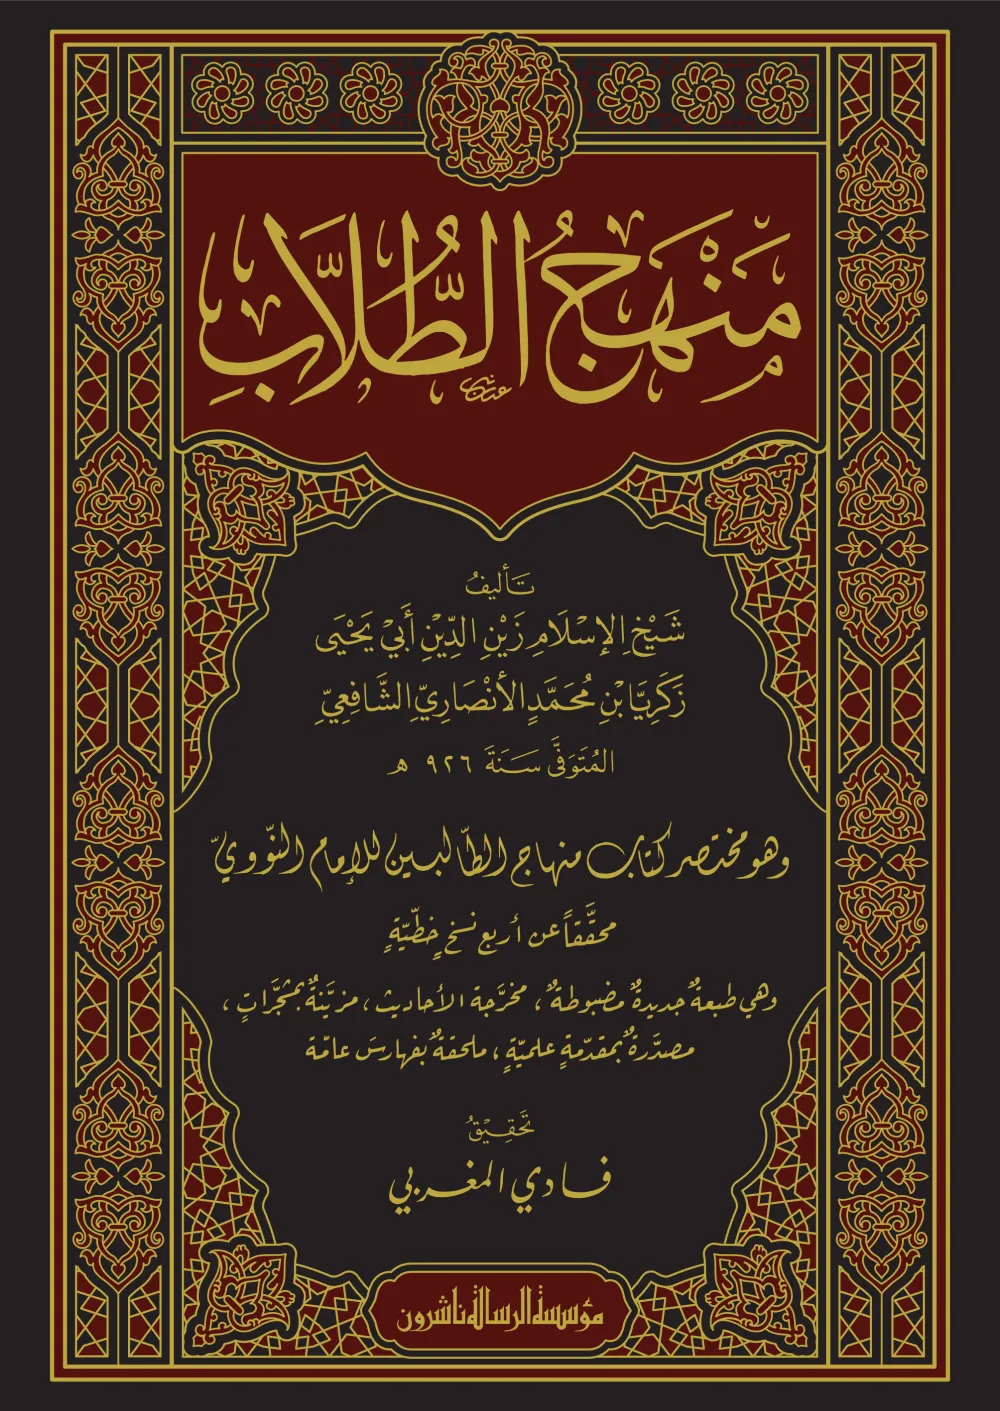 مَنْهَجُ الطُّلَّابِ
تَأليفُ
شَيْخِ الإِسْلَامِ زَيْنِ الدِّيْنِ أَبِيْ يَحْيَى
زَكَرِيَّا بْنِ مُحَمَّدٍ الأَنْصَارِيِّ الشَّافِعِيِّ
المُتَوَفَّى سَنَةَ ٩٢٦ هـ
وهو مختصر كتاب منهاج الطّالبين للإمام النّوويّ
محقَّقاً عن أربع نسخٍ خطّيّةٍ
وهي طبعةٌ جديدةٌ مضبوطةٌ، مخرَّجة الأحاديث، مزيَّنةٌ بمشجَّراتٍ،
مصدَّرةٌ بمقدّمةٍ علميّةٍ، ملحقةٌ بفهارسَ عامّة
تَحْقِيْقُ
فادي المغربي
مؤسسة الرسالة ناشرون